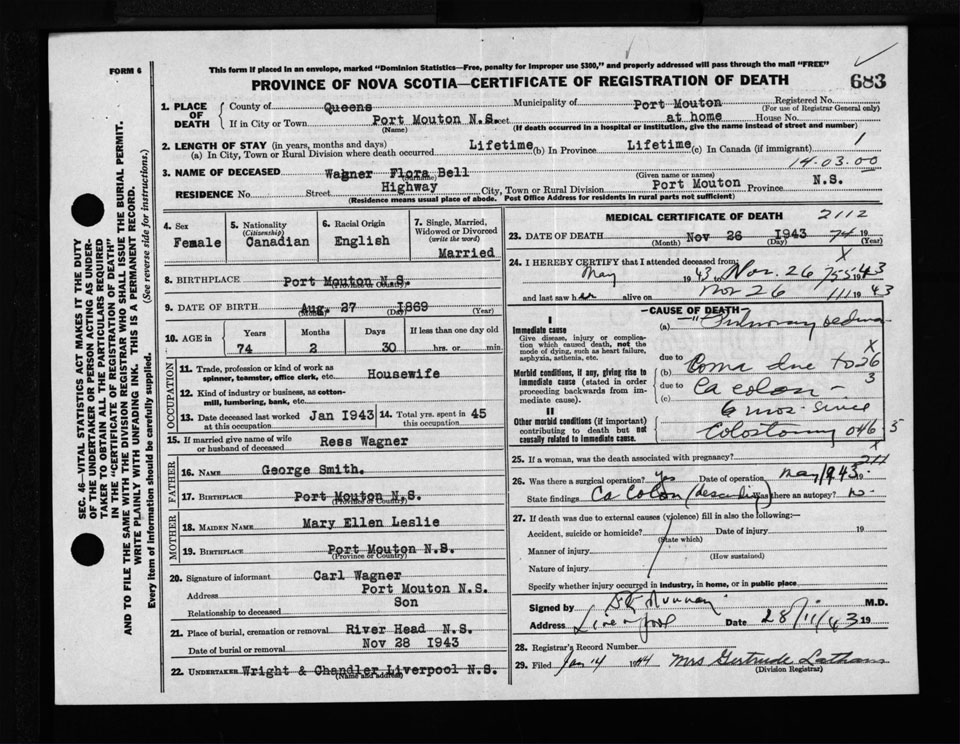 FORM 6
This form if placed in an envelope, marked "Dominion Statistics—Free, penalty for improper use $300," and properly addressed will pass through the mail "FREE"
PROVINCE OF NOVA SCOTIA—CERTIFICATE OF REGISTRATION OF DEATH
683
1. PLACE OF DEATH
County of Queens Municipality of Port Mouton Registered No.
(For use of Registrar General only)
If in City or Town Port Mouton N.S. Street at home House No.
(Name) (If death occurred in a hospital or institution, give the name instead of street and number)
2. LENGTH OF STAY (in years, months and days)
(a) In City, Town or Rural Division where death occurred Lifetime (b) In Province Lifetime (c) In Canada (if immigrant) 1
14.03.00
3. NAME OF DECEASED Wagner Flora Bell
(Surname) (Given name or names)
RESIDENCE No. Street Highway City, Town or Rural Division Port Mouton Province N.S.
(Residence means usual place of abode. Post Office Address for residents in rural parts not sufficient)
4. Sex
Female
5. Nationality
(Citizenship)
Canadian
6. Racial Origin
English
7. Single, Married, Widowed or Divorced
(write the word)
Married
8. BIRTHPLACE Port Mouton N.S.
(Province or Country)
9. DATE OF BIRTH Aug. 27 1869
(Month) (Day) (Year)
10. AGE in
Years Months Days If less than one day old
74 2 30 hrs. or min.
OCCUPATION
11. Trade, profession or kind of work as spinner, teamster, office clerk, etc. Housewife
12. Kind of industry or business, as cotton-mill, lumbering, bank, etc.
13. Date deceased last worked at this occupation Jan 1943 14. Total yrs. spent in this occupation 45
15. If married give name of wife or husband of deceased Ress Wagner
FATHER
16. NAME George Smith.
17. BIRTHPLACE Port Mouton N.S.
(Province or Country)
MOTHER
18. MAIDEN NAME Mary Ellen Leslie
19. BIRTHPLACE Port Mouton N.S.
(Province or Country)
20. Signature of informant Carl Wagner
Address Port Mouton N.S.
Relationship to deceased Son
21. Place of burial, cremation or removal River Head N.S.
Date of burial or removal Nov 28 1943
22. UNDERTAKER Wright & Chandler Liverpool N.S.
(Name and address)
MEDICAL CERTIFICATE OF DEATH 2112
23. DATE OF DEATH Nov 26 1943 74 19
(Month) (Day) (Year)
24. I HEREBY CERTIFY that I attended deceased from:
May 1943 to Nov. 26 755 1943
and last saw her alive on Nov 26 111 1943
CAUSE OF DEATH
I
Immediate cause
Give disease, injury or complication which caused death, not the mode of dying, such as heart failure, asphyxia, asthenia, etc.
(a) Pulmonary oedema
X
due to
(b) Coma due to 26
3
Morbid conditions, if any, giving rise to immediate cause (stated in order proceeding backwards from immediate cause).
due to
(c) Ca colon —
6 mos. since
II
Other morbid conditions (if important) contributing to death but not causally related to immediate cause.
Colostomy 046.5
X
25. If a woman, was the death associated with pregnancy? 211
26. Was there a surgical operation? yes Date of operation May 1943
State findings Ca Colon (descending) Was there an autopsy? no
27. If death was due to external causes (violence) fill in also the following:—
Accident, suicide or homicide? Date of injury 19
(State which)
Manner of injury
(How sustained)
Nature of injury
Specify whether injury occurred in industry, in home, or in public place
Signed by M.D.
Address Liverpool Date 28/11/43 19
28. Registrar's Record Number
29. Filed Jan 14 1944 Mrs Gertrude Latham
(Division Registrar)
SEC. 46—VITAL STATISTICS ACT MAKES IT THE DUTY
OF THE UNDERTAKER OR PERSON ACTING AS UNDER-
TAKER TO OBTAIN ALL THE PARTICULARS REQUIRED
IN THE "CERTIFICATE OF REGISTRATION OF DEATH"
AND TO FILE THE SAME WITH THE DIVISION REGISTRAR WHO SHALL ISSUE THE BURIAL PERMIT.
WRITE PLAINLY WITH UNFADING INK. THIS IS A PERMANENT RECORD.
Every item of information should be carefully supplied. (See reverse side for instructions.)